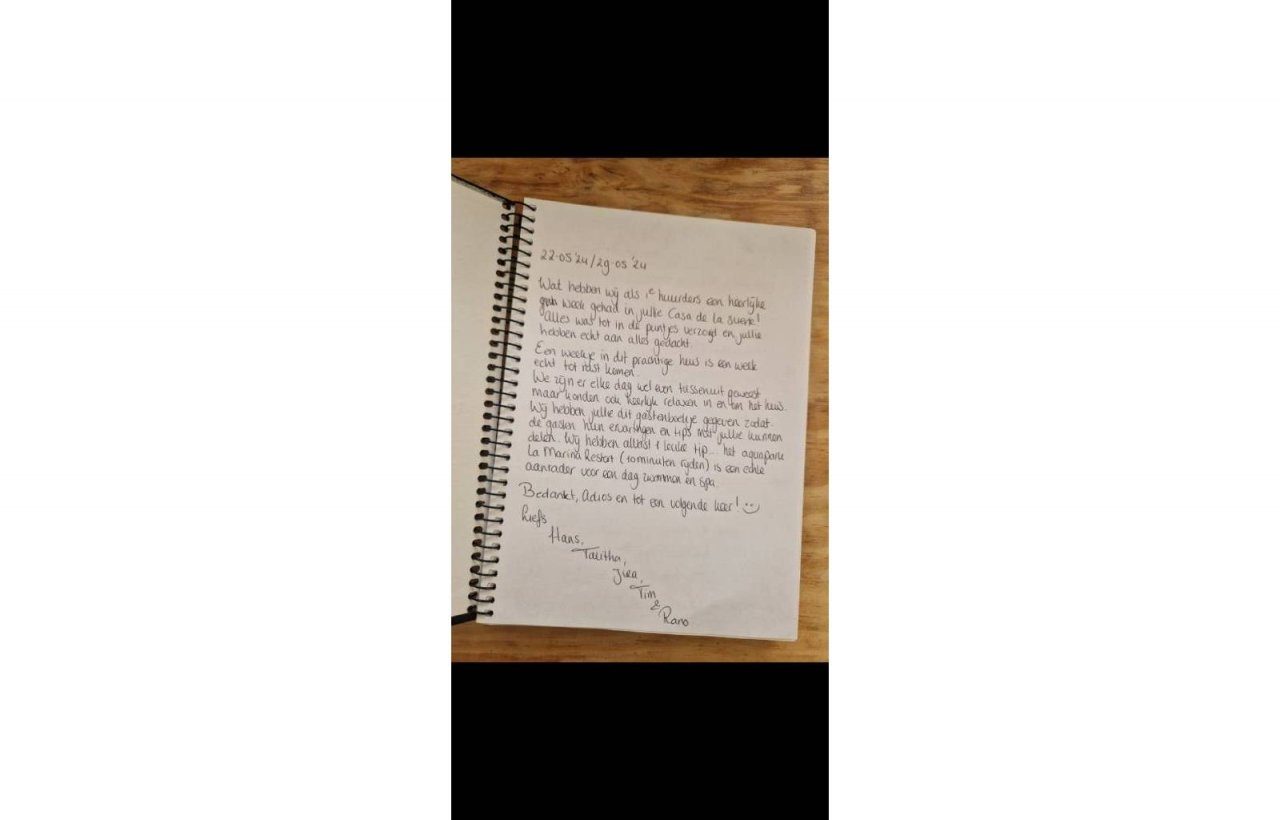 22-05'24/29-05'24
Wat hebben wij als 1e huurders een heerlijke
week gehad in jullie Casa de la Suerte!
Alles was tot in de puntjes verzorgd en jullie
hebben echt aan alles gedacht.
Een weekje in dit prachtige huis is een week
echt tot rust komen.
We zijn er elke dag wel even tussenuit geweest
maar konden ook heerlijk relaxen in en om het huis.
Wij hebben jullie dit gastenboekje gegeven zodat
de gasten hun ervaringen en tips met jullie kunnen
delen. Wij hebben alvast 1 leuke tip... het aquapark
La Marina Resort (10 minuten rijden) is een echte
aanrader voor een dag zwemmen en spa.
Bedankt, Adios en tot een volgende keer!
Liefs
Hans,
Talitha,
Jira,
Tim
&